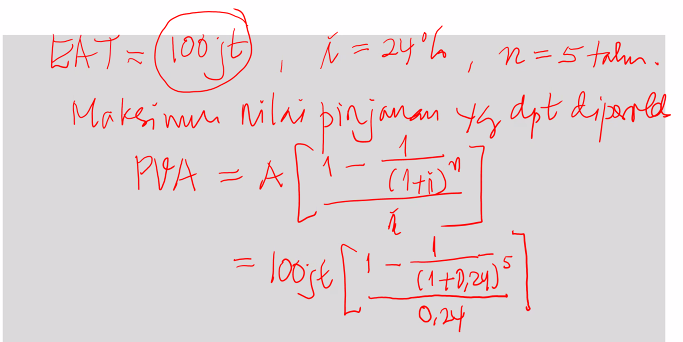 EAT = 100jt, i = 24%, n = 5 tahun.
Maksimum nilai pinjaman yg dpt diperoleh
PVA = A [ (1 - 1/(1+i)^n) / i ]
= 100jt [ (1 - 1/(1+0,24)^5) / 0,24 ]